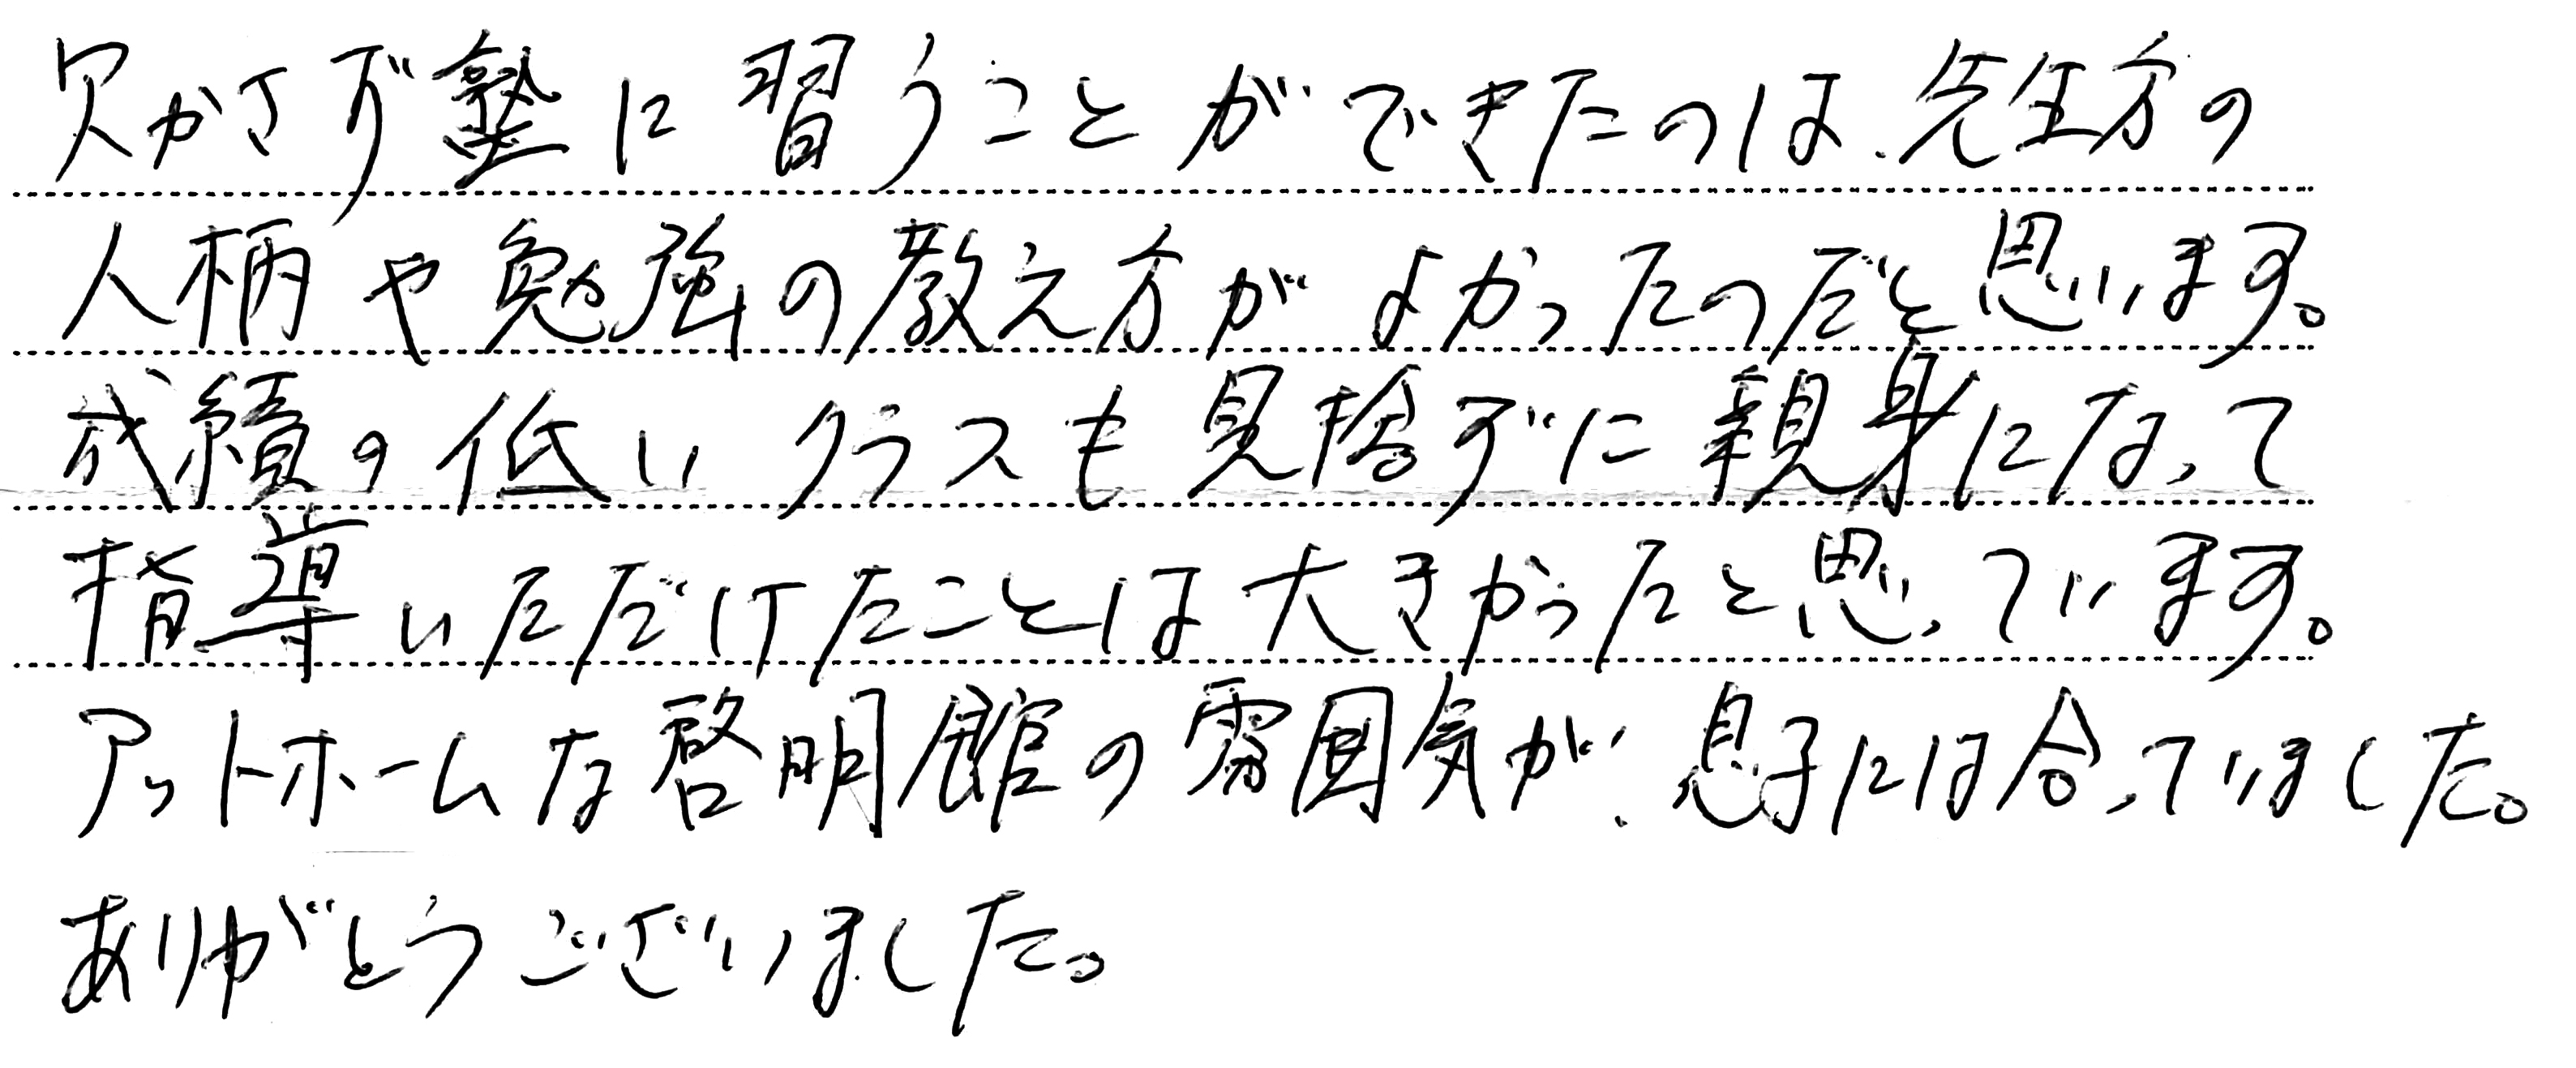 欠かさず塾に習うことができたのは、先生方の
人柄や勉強の教え方がよかったのだと思います。
成績の低いクラスも見捨ずに親身になって
指導いただけたことは大きかったと思っています。
アットホームな啓明館の雰囲気が、息子には合っていました。
ありがとうございました。